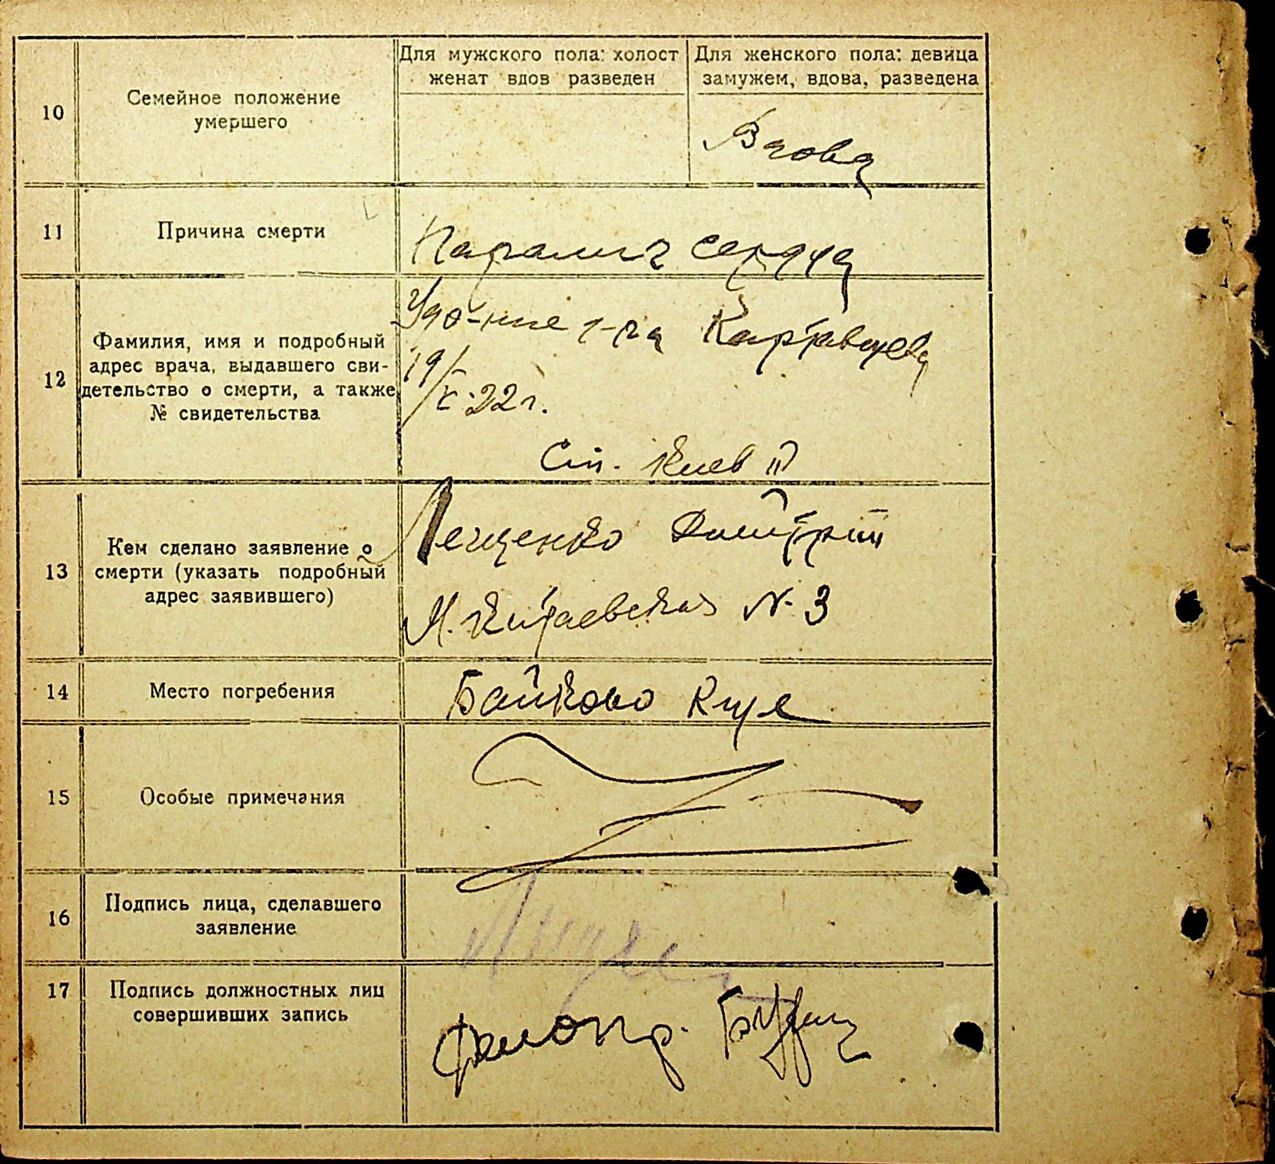 10
Семейное положение
умершего
Для мужского пола: холост
женат вдов разведен
Для женского пола: девица
замужем, вдова, разведена
Вдова
11
Причина смерти
Паралич сердца
12
Фамилия, имя и подробный
адрес врача, выдавшего сви-
детельство о смерти, а также
№ свидетельства
Удо-ние д-ра Картавцева
19/X-22 г.
Ст. Киев II
13
Кем сделано заявление о
смерти (указать подробный
адрес заявившего)
Лещенко Дмитрий
М. Китаевская N. 3
14
Место погребения
Байково Кще
15
Особые примечания
16
Подпись лица, сделавшего
заявление
17
Подпись должностных лиц
совершивших запись